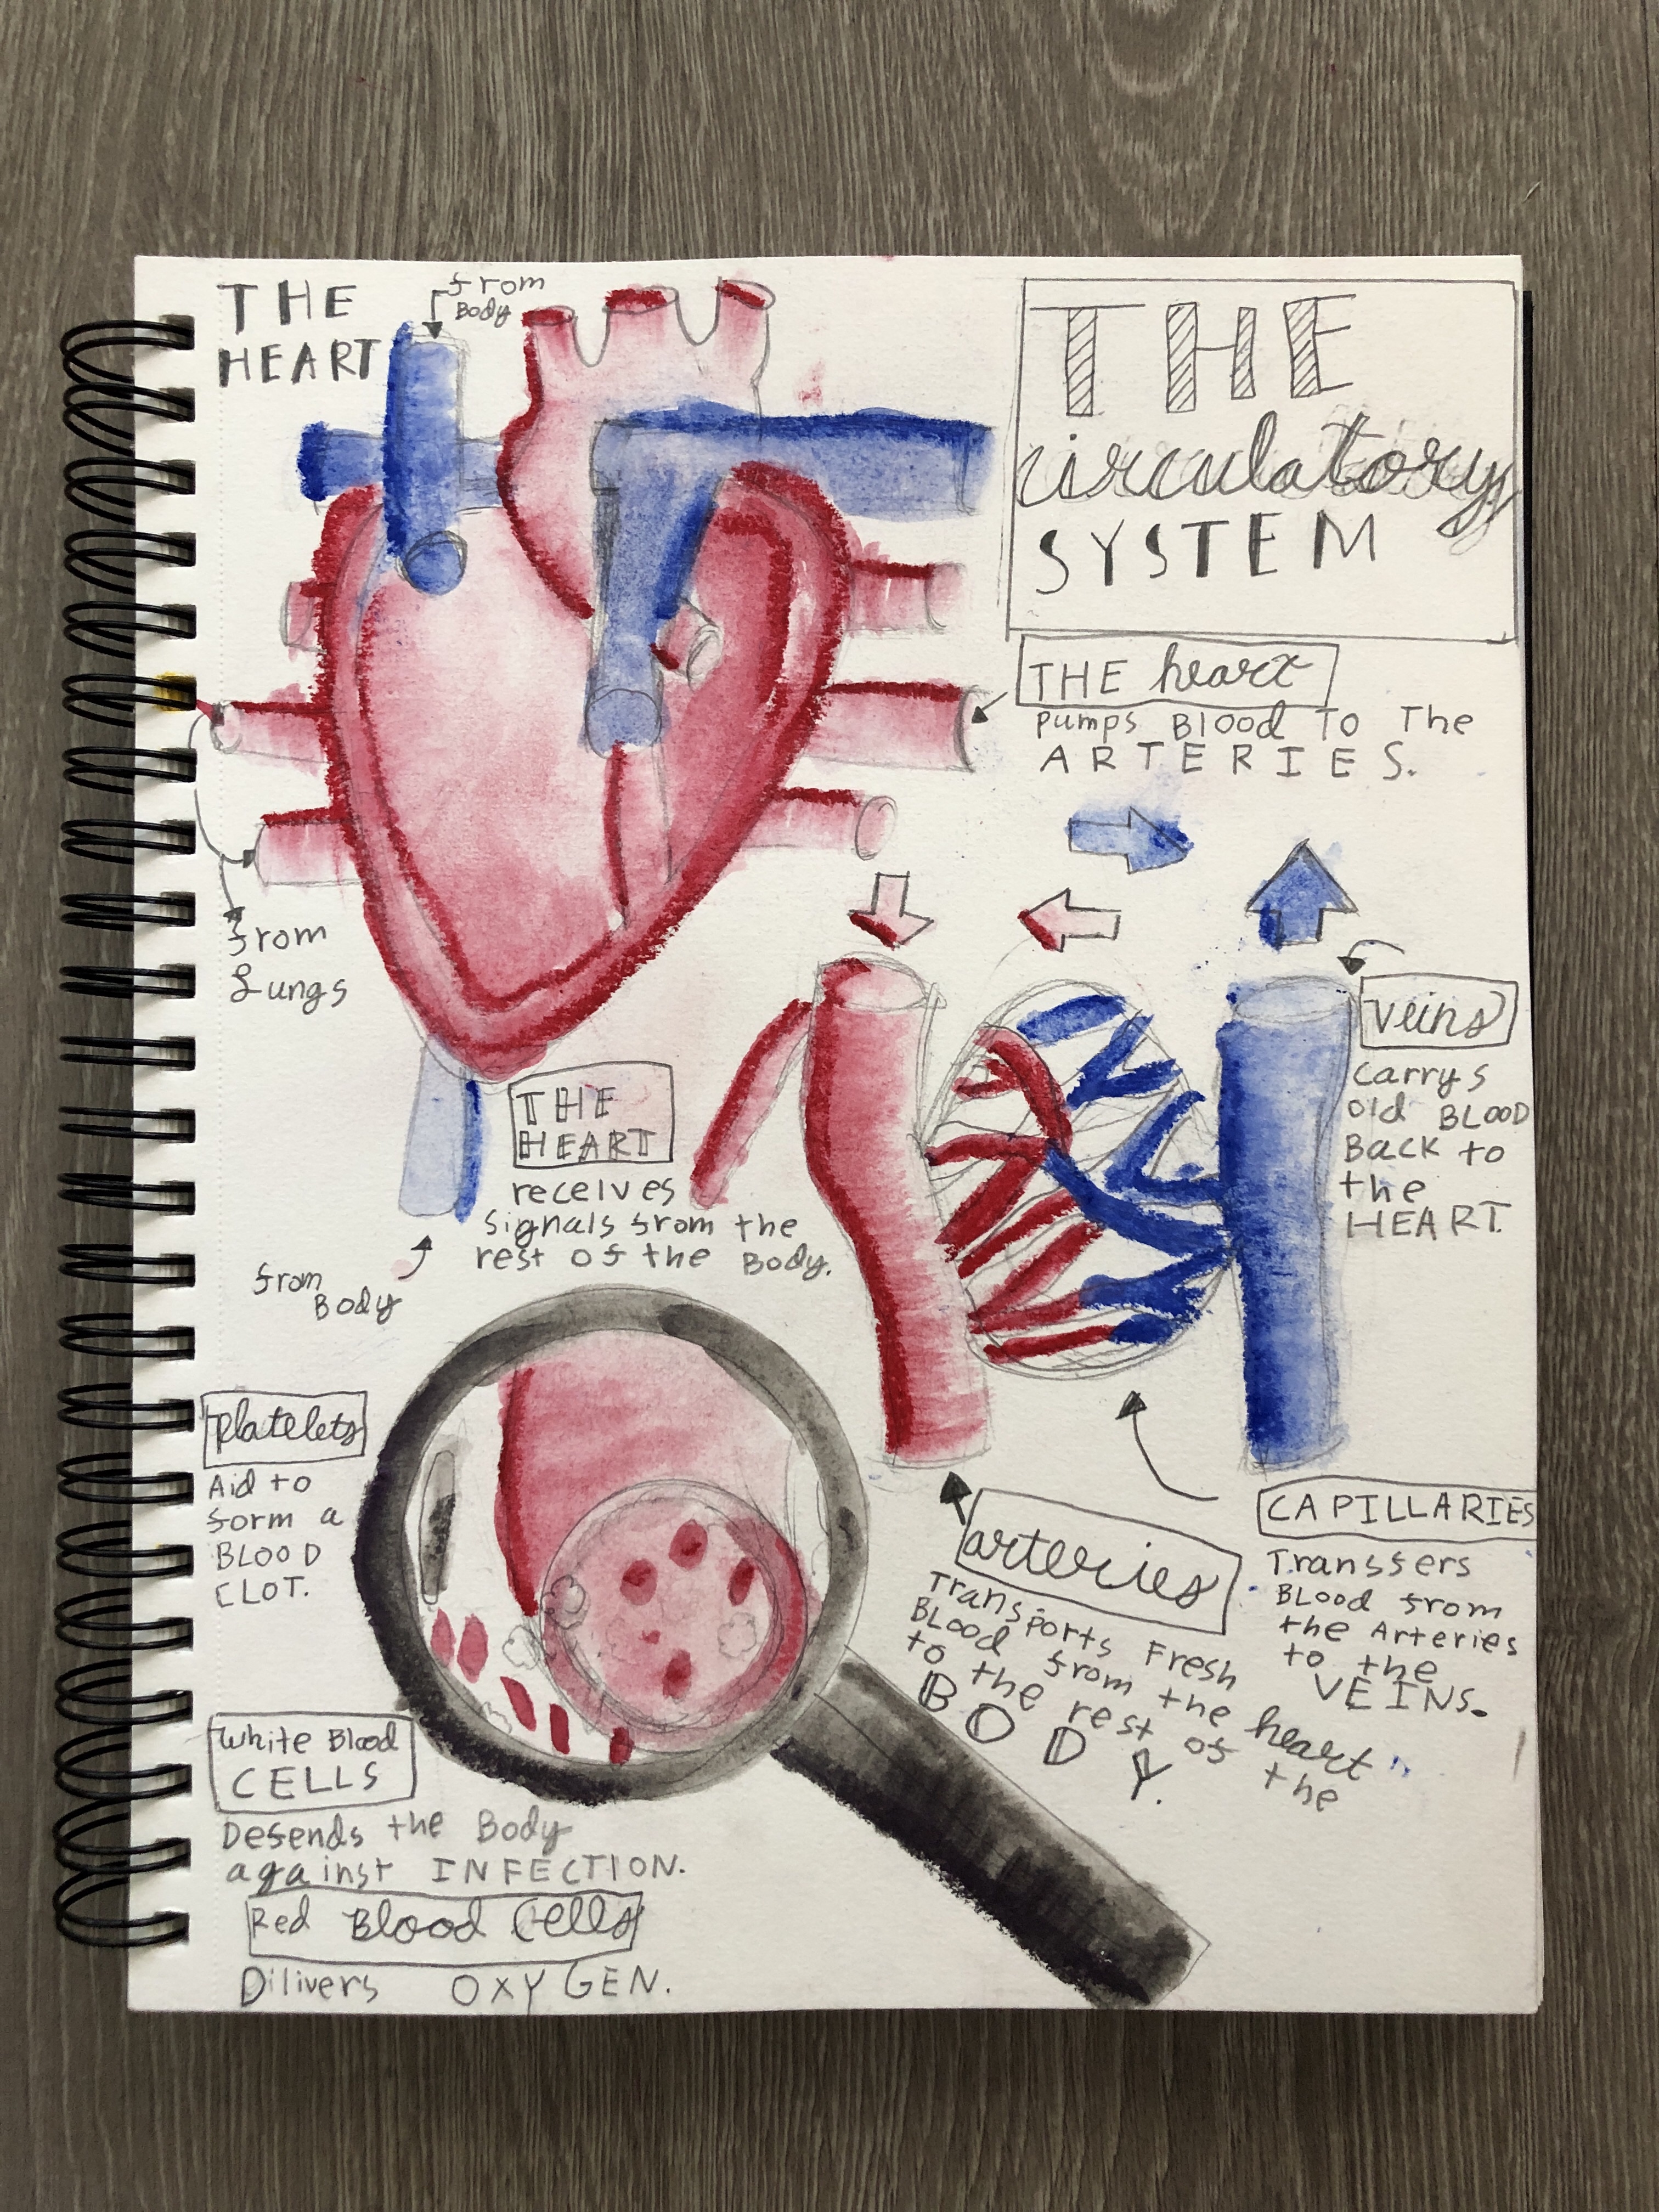 THE
HEART
from
Body
THE
circulatory
SYSTEM
THE heart
Pumps Blood To The
ARTERIES.
from
Lungs
veins
carrys
old BLOOD
Back to
the
HEART.
THE
HEART
receives
signals from the
rest of the Body.
from
Body
Platelets
Aid to
form a
BLOOD
CLOT.
arteries
Transports Fresh
BLood from the heart
to the rest of the
BODY.
CAPILLARIES
Transfers
BLood from
the Arteries
to the
VEINS.
White Blood
CELLS
Defends the Body
against INFECTION.
Red Blood Cells
Dilivers OXYGEN.